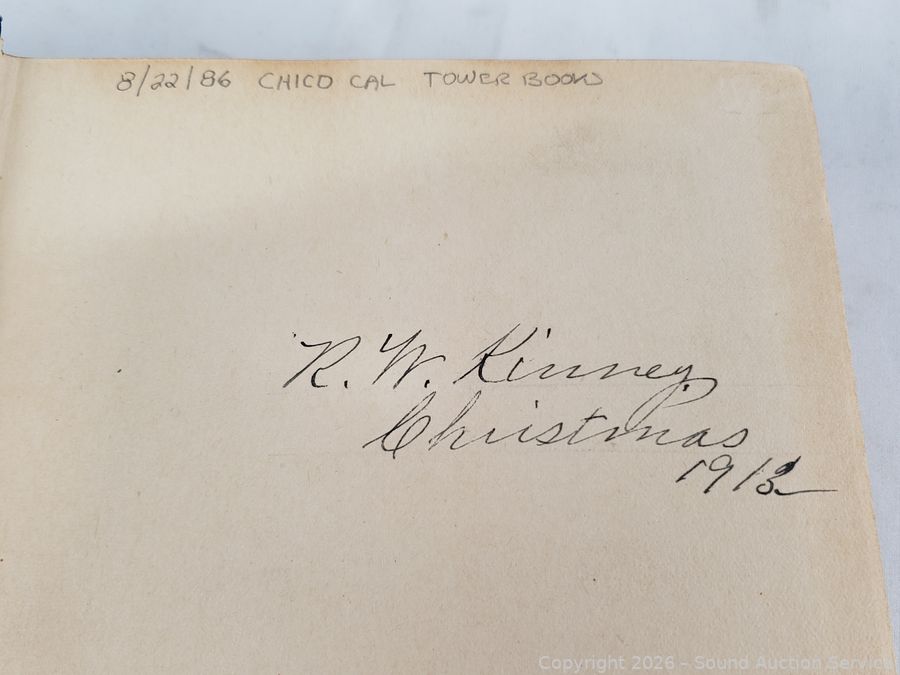 8/22/86 CHICO CAL TOWER BOOKS
R. W. Kinney
Christmas
Copyright 2026 - Sound Auction Service